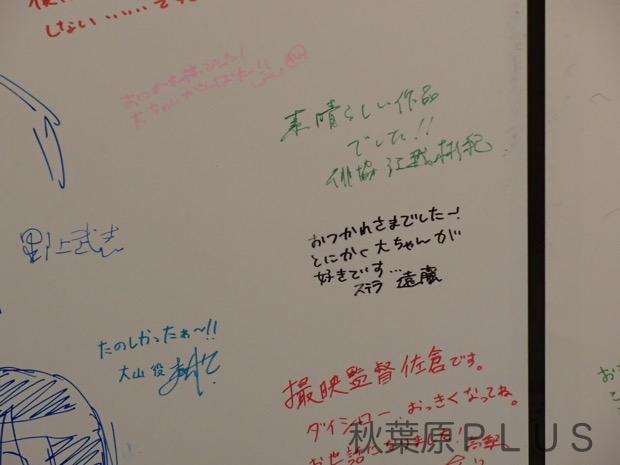 しない……
おつかれ様でした!
大ちゃんがんばれー!!
素晴らしい作品
でした!!
俳協 江越彬紀
野上武志
おつかれさまでしたー!
とにかく大ちゃんが
好きです…
ステラ 遠藤
たのしかったぁ〜!!
大山 役
撮映監督佐倉です。
ダイシロー おっきくなってね。
お世話になりました!
秋葉原PLUS